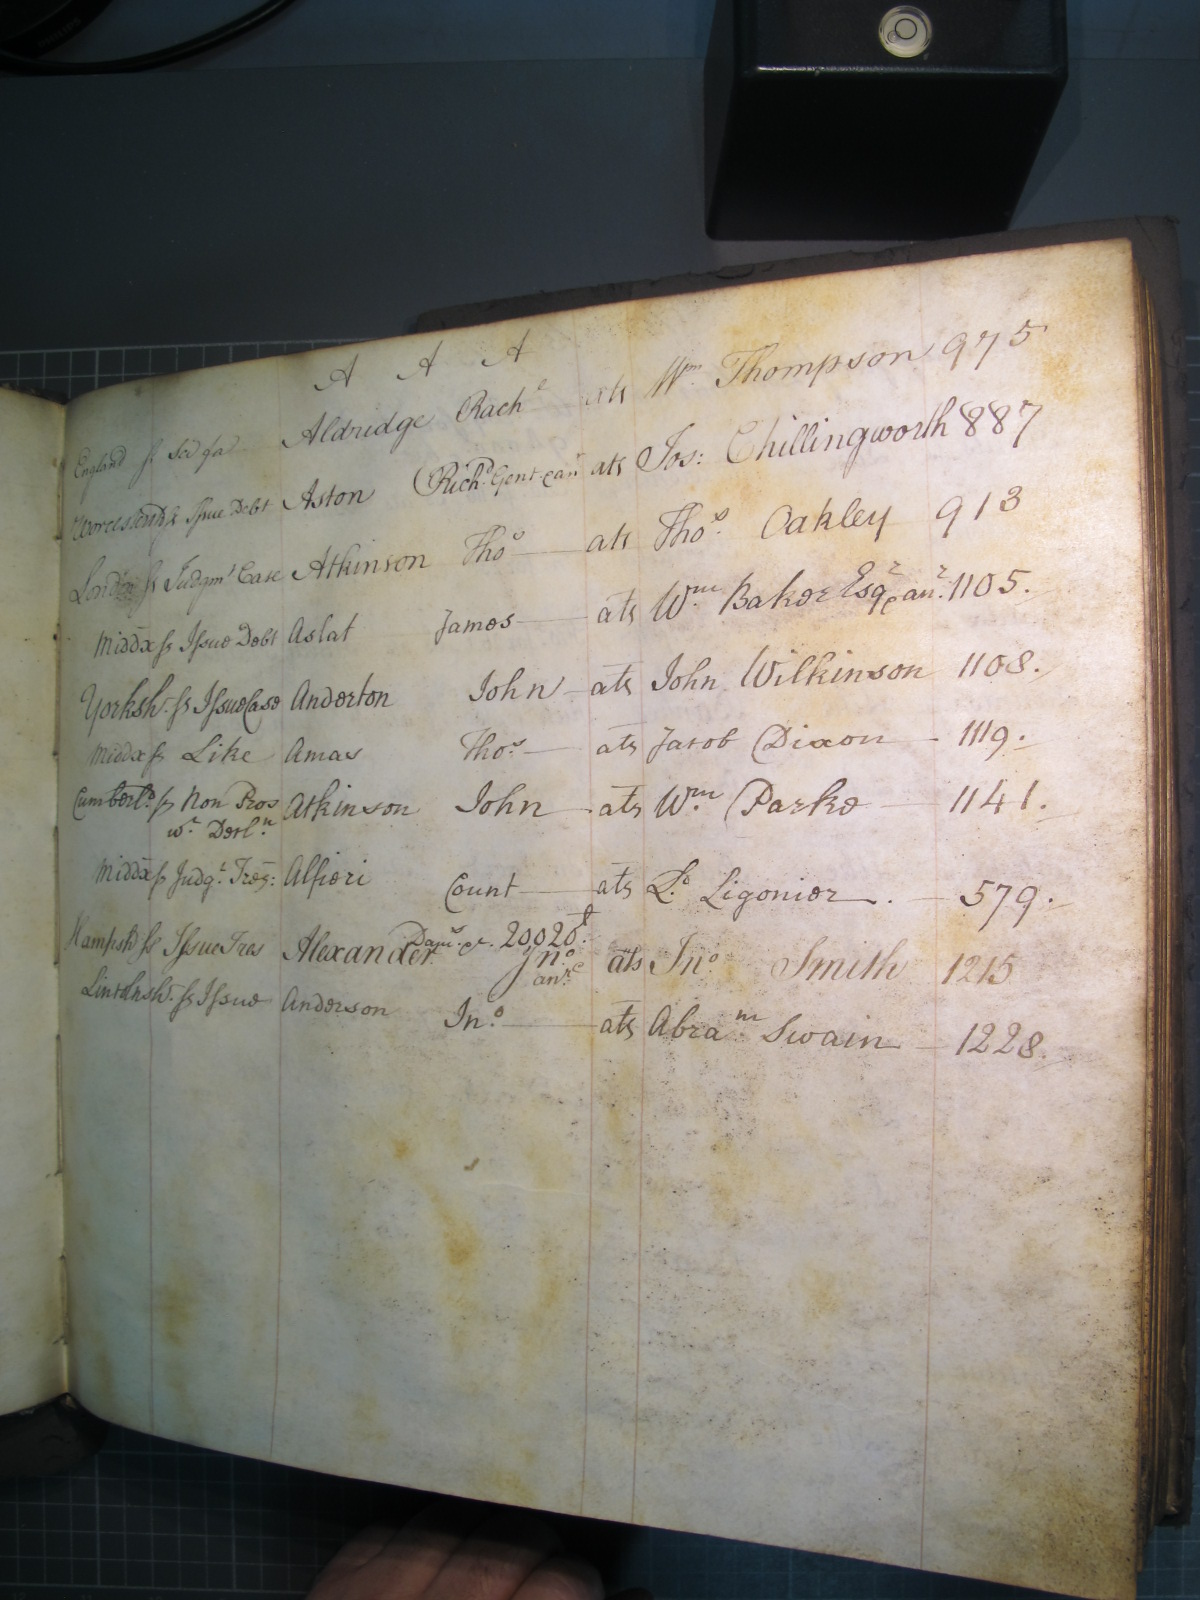 A A A
England ſs Sci fa Aldridge Rach^l ats W^m Thompson 975
Worcestersh ſs Iſsue Debt Aston Rich^d Gent &an^r ats Jos: Chillingworth 887
London ſs Judgm^t Case Atkinson Tho^s ats Tho^s Oakley 913
Middx ſs Iſsue Debt Aslat James ats W^m Baker Esq^r & an^r. 1105.
Yorksh. ſs Iſsue Case Anderton John ats John Wilkinson 1108.
Middx ſs Like Amas Tho^s ats Jacob Dixon 1119.
Cumberl^d ſs Non Pros Atkinson John ats W^m Parke 1141.
w^t Decl^n
Middx ſs Judg^t Tres: Alfieri Count ats L^d Ligonier. 579.
20020
Hampsh ſs Iſsue Tres Alexander Jn^o ats Jn^o Smith 1215
an^r
Lincolnsh. ſs Iſsue Anderson Jn^o ats Abra^m Swain 1228.